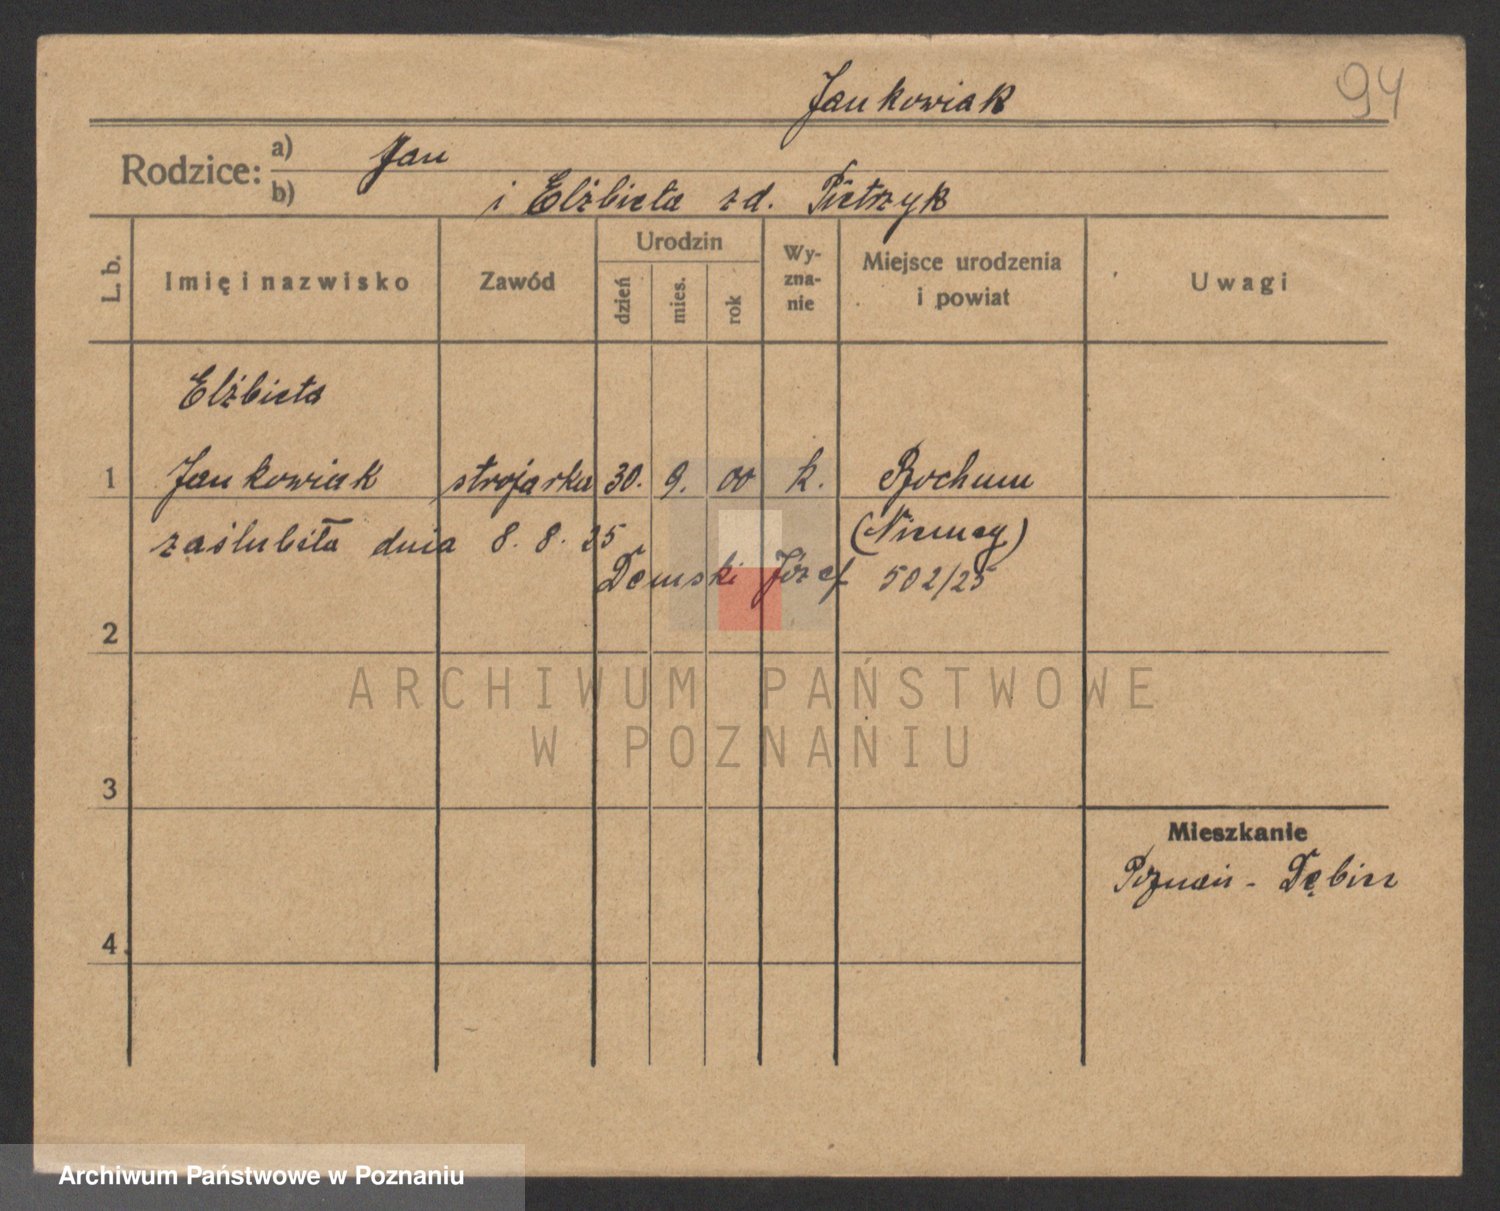 94
Jankowiak
Rodzice: a) Jan
b) i Elżbieta zd. Pietrzyk
L. b.
Imię i nazwisko
Zawód
Urodzin
dzień
mies.
rok
Wy-
zna-
nie
Miejsce urodzenia
i powiat
Uwagi
Elżbieta
1 Jankowiak strojarka 30. 9. 00 k. Bochum
zaślubiła dnia 8. 8. 25 (Niemcy)
Demski Józef 502/25
2
ARCHIWUM PAŃSTWOWE
W POZNANIU
3
Mieszkanie
Poznań - Dębiec
4.
Archiwum Państwowe w Poznaniu